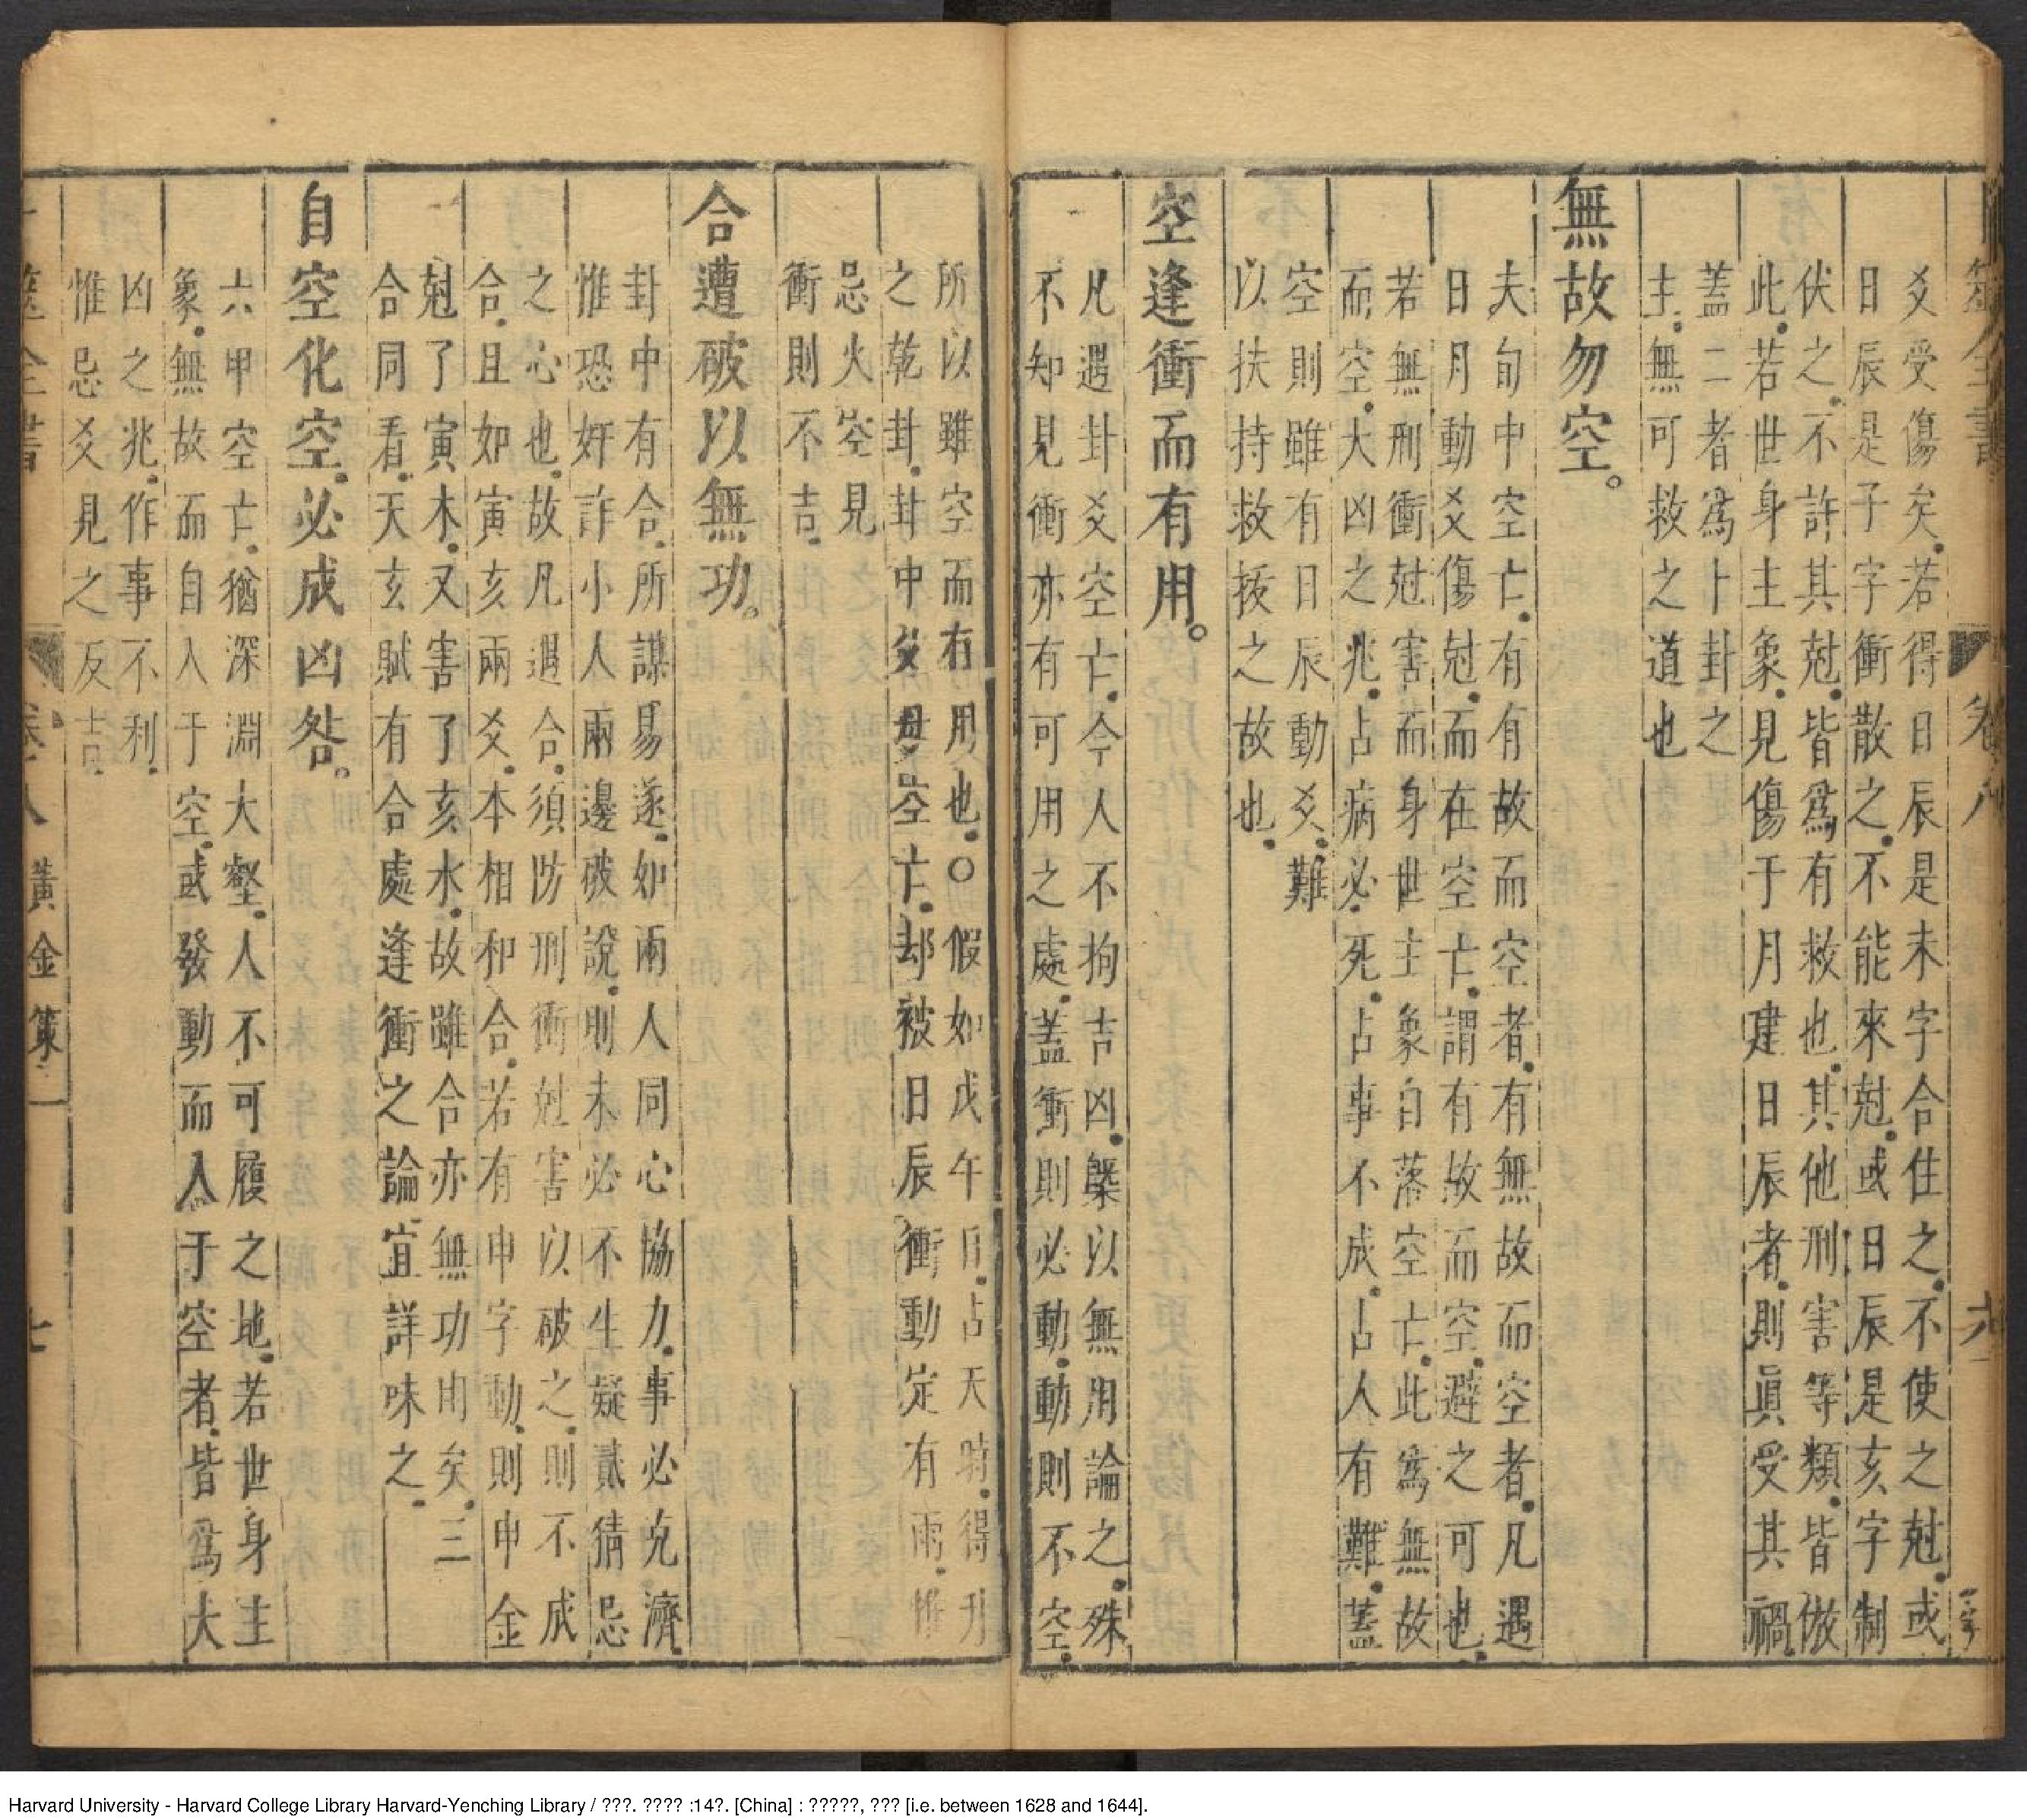 爻受傷矣.若得日辰是未字合住之.不使之尅.或
日辰是子字衝散之.不能來尅.或日辰是亥字制
伏之.不許其尅.皆爲有救也.其他刑害等類.皆倣
此.若世身主象.見傷于月建日辰者.則眞受其禍.
蓋二者爲卜卦之
主.無可救之道也
無故勿空。
夫旬中空亡.有有故而空者.有無故而空者.凡遇
日月動爻傷尅.而在空亡.謂有故而空.避之可也.
若無刑衝尅害而身世主象自落空亡.此爲無故
而空.大凶之兆.占病必死.占事不成.占人有難.蓋
空則雖有日辰動爻.難
以扶持救拔之故也.
空逢衝而有用。
凡遇卦爻空亡.今人不拘吉凶.槩以無用論之.殊
不知見衝亦有可用之處.蓋衝則必動.動則不空.
所以雖空而有用也.○假如戊午日.占天時.得升
之乾卦.卦中父母空亡.却被日辰衝動定有雨.惟
忌火空見
衝則不吉.
合遭破以無功。
卦中有合.所謀易遂.如兩人同心協力.事必克濟.
惟恐奸詐小人兩邊破說.則未必不生疑貳猜忌
之心也.故凡遇合.須防刑衝尅害以破之.則不成
合.且如寅亥兩爻.本相和合.若有申字動.則申金
尅了寅木.又害了亥水.故雖合亦無功用矣.三
合同看.天玄賦有合處逢衝之論宜詳味之.
自空化空.必成凶咎。
六甲空亡.猶深淵大壑.人不可履之地.若世身主
象.無故而自入于空.或發動而入于空者.皆爲大
凶之兆.作事不利.
惟忌爻見之反吉.
卷八
黃金策一
七